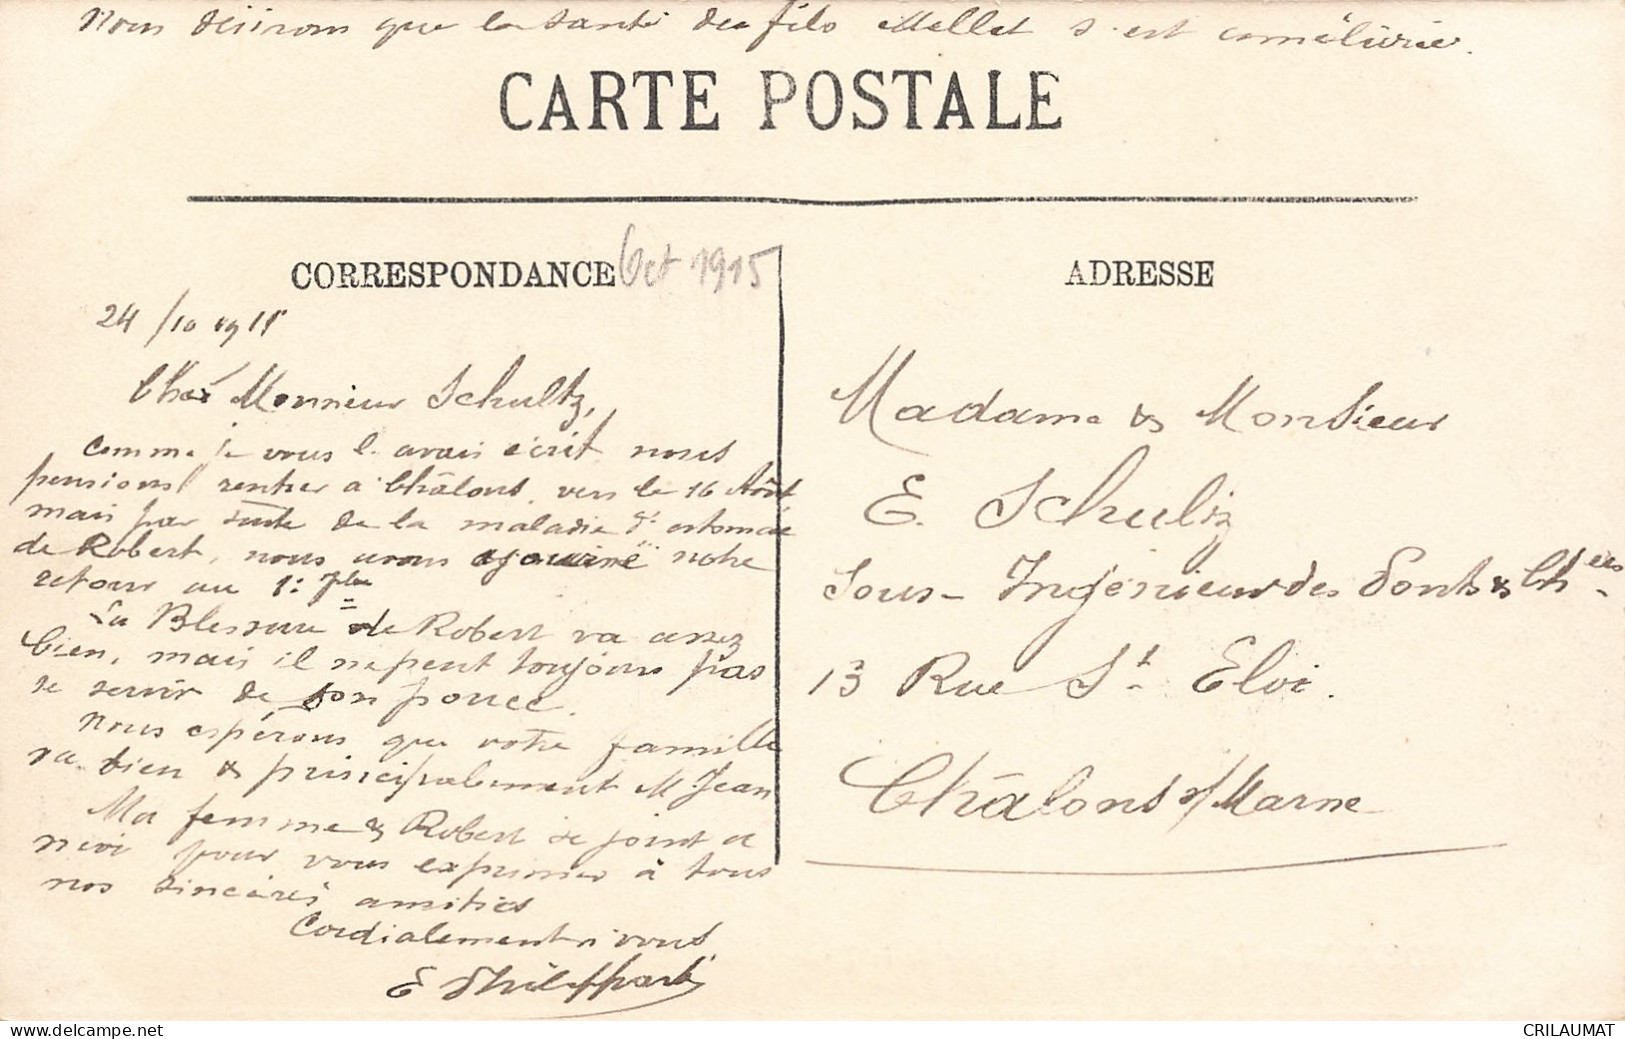 Nous désirons que la santé des fils Mellet s'est améliorée.
CARTE POSTALE
CORRESPONDANCE Oct 1915
ADRESSE
24/10 1915
Cher Monsieur Schultz,
Comme je vous l'avais écrit nous
pensions rentrer à Châlons, vers le 16 Août
mais par suite de la maladie d'estomac
de Robert, nous avons ajourné notre
retour au 1er 7bre
La Blessure de Robert va assez
bien, mais il ne peut toujours pas
se servir de son pouce.
Nous espérons que votre famille
va bien & principalement M Jean
Ma femme & Robert se joint a
moi pour vous exprimer à tous
nos sincères amitiés
Cordialement à vous
E Philippart
Madame & Monsieur
E. Schultz
Sous-Ingénieur des Ponts & Chées.
13 Rue St. Eloi.
Châlons s/Marne
delcampe.net
CRILAUMAT